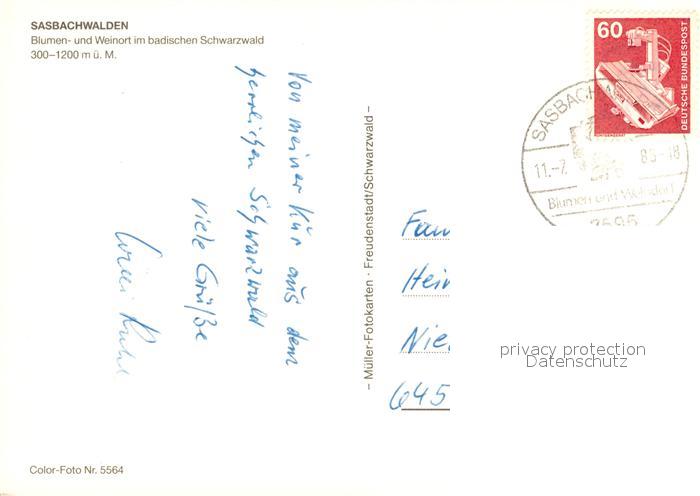 SASBACHWALDEN
Blumen- und Weinort im badischen Schwarzwald
300–1200 m ü. M.
Von meiner Kur aus dem
herrlichen Schwarzwald
viele Grüße
– Müller-Fotokarten · Freudenstadt/Schwarzwald –
60
DEUTSCHE BUNDESPOST
SASBACHW
11.-7. 8 -18
Blumen und Weindorf
7595
Fam
Hein
Nie
645
privacy protection
Datenschutz
Color-Foto Nr. 5564